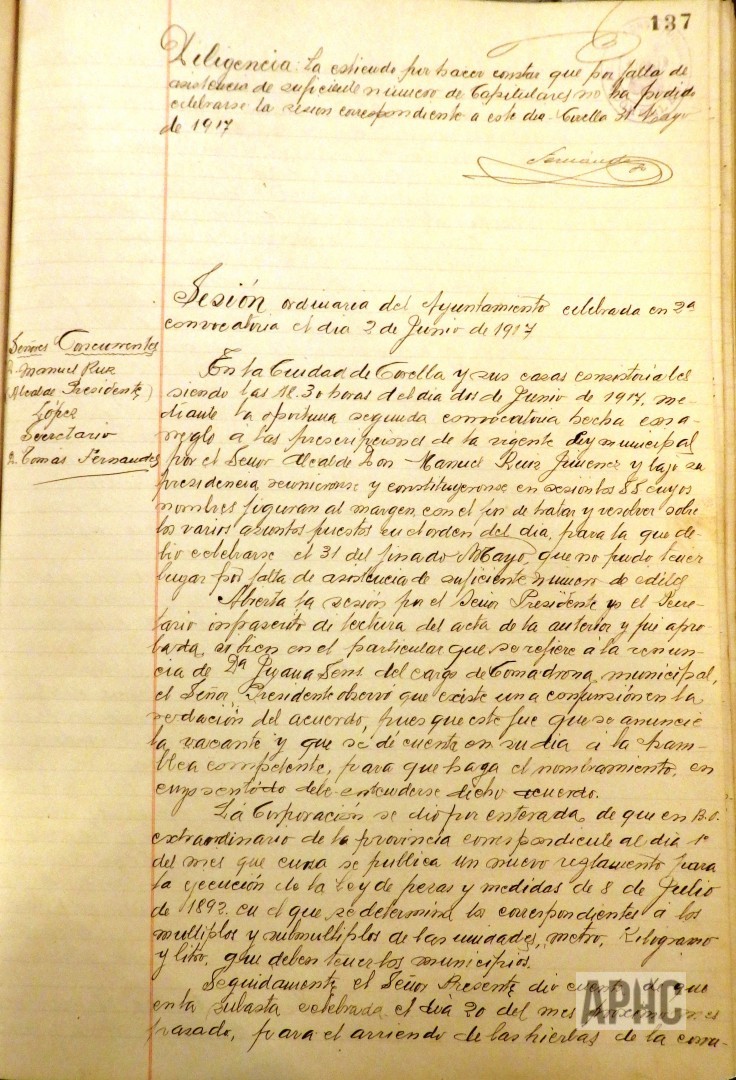 137
Diligencia: La estiendo por hacer constar que por falta de
asistencia de suficiente número de Capitulares no ha podido
celebrarse la sesion correspondiente a este dia. Corella 31 Mayo
de 1917
Sesión ordinaria del Ayuntamiento celebrada en 2ª
convocatoria el dia 2 de Junio de 1917
Señores Concurrentes
D. Manuel Ruiz
(Alcalde Presidente)
López
Secretario
D. Tomás Fernandez
En la Ciudad de Corella y sus casas consistoriales
siendo las 18.30 horas del dia dos de Junio de 1917, me-
diante la oportuna segunda convocatoria hecha con a-
rreglo a las prescripciones de la vigente Ley municipal
por el Señor Alcalde Don Manuel Ruiz Jimenez y bajo su
presidencia, reunieronse y constituyeronse en sesion los SS cuyos
nombres figuran al margen, con el fin de tratar y resolver sobre
los varios asuntos puestos en el orden del dia, para la que de-
bio celebrarse el 31 del finado Mayo, que no pudo tener
lugar por falta de asistencia de suficiente numero de ediles
Abierta la sesión por el Señor Presidente yo el Secre-
tario infrascrito di lectura del acta de la anterior y fué apro-
bada, si bien en el particular que se refiere a la renun-
cia de Dª Juana Sens del cargo de Comadrona municipal,
el Señor Presidente observó que existe una confusión en la
redacción del acuerdo, pues que este fue que se anuncie
la vacante y que se dé cuenta en su dia á la Asam-
blea competente, para que haga el nombramiento, en
cuyo sentido debe entenderse dicho acuerdo.
La Corporación se dio por enterada de que en B.O.
extraordinario de la provincia correspondiente al dia 1º
del mes que cursa se publica un nuevo reglamento para
la ejecución de la Ley de pesas y medidas de 8 de Julio
de 1892, en el que se determina los correspondientes á los
multiplos y submultiplos de las unidades, metro, Kilogramo
y litro, que deben tener los municipios.
Seguidamente el Señor Presente dio cuenta de que
en la subasta celebrada el dia 20 del mes
pasado, para el arriendo de las hierbas de la
APHC